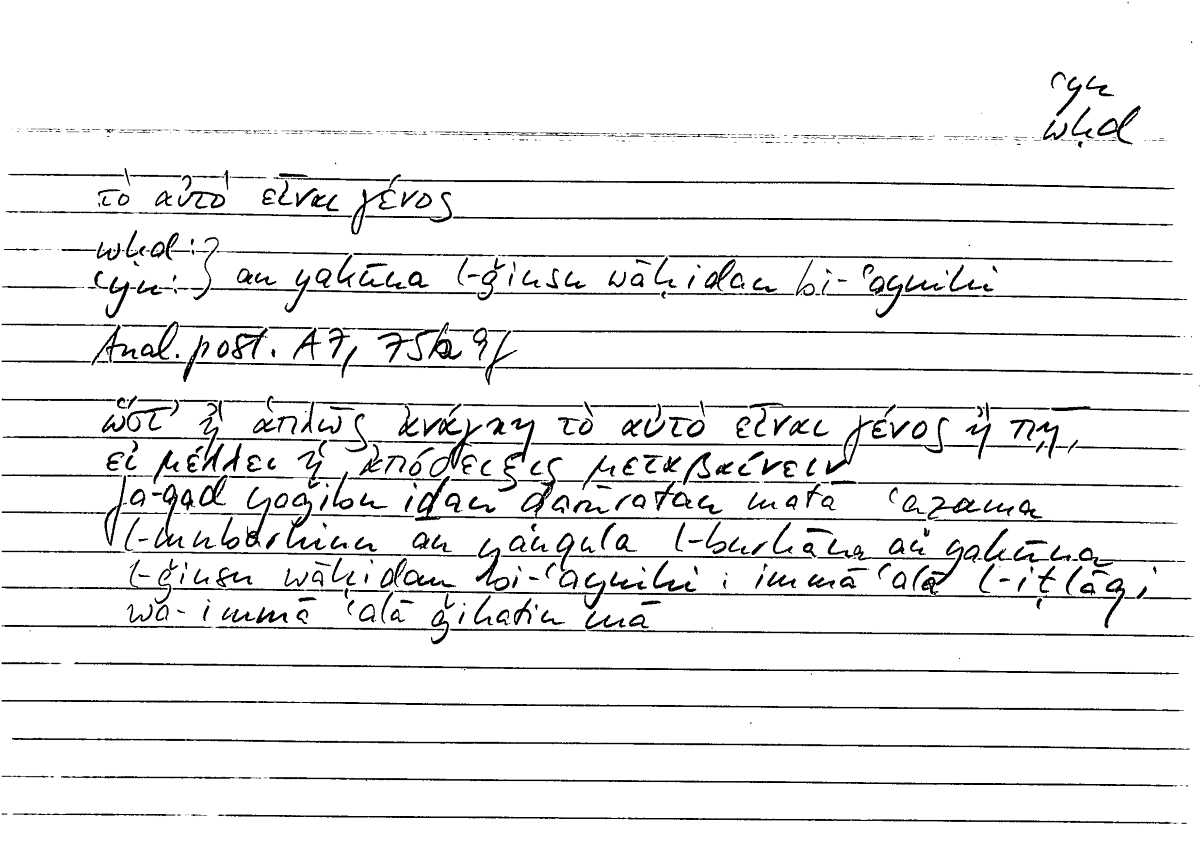 ʿyn
wḥd
τὸ αὐτὸ εἶναι γένος
wḥd:}
ʿyn:} an yakūna l-ǧinsu wāḥidan bi-ʿaynihi
Anal. post. A7, 75b 9f
ὥστ’ ἢ ἁπλῶς ἀνάγκη τὸ αὐτὸ εἶναι γένος ἢ πῃ,
εἰ μέλλει ἡ ἀπόδειξις μεταβαίνειν
fa-qad yaǧibu iḏan ḍarūratan matā ʿazama
l-mubarhinu an yanqula l-burhāna an yakūna
l-ǧinsu wāḥidan bi-ʿaynihi: immā ʿalā l-iṭlāqi
wa-immā ʿalā ǧihatin mā